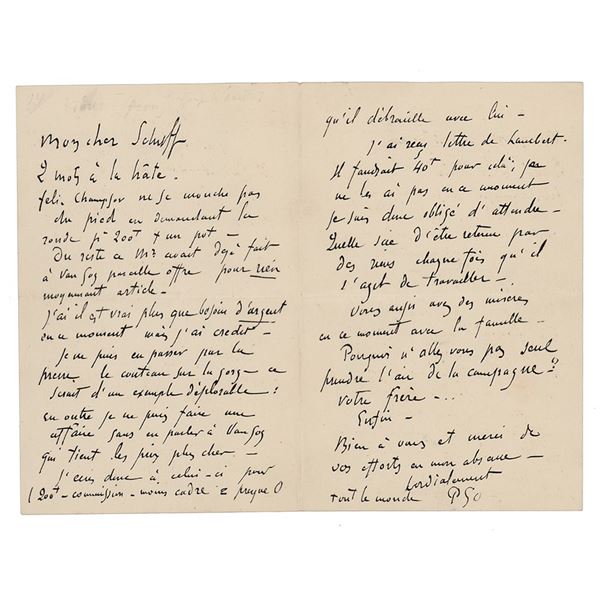 Mon cher Schuff
2 mots à la hâte.
felix Champsor ne se mouche pas
du pied en demandant la
ronde pr 200f + un pot —
Du reste ce Mr avait déjà fait
à Van Gog pareille offre pour rien
moyennant article —
J'ai il est vrai plus que besoin d'argent
en ce moment mais j'ai credit —
Je ne puis en passer par la
presse le couteau sur la gorge — ce
serait d'un exemple déplorable :
en outre je ne puis faire une
affaire sans en parler à Van Gog
qui tient les prix plus cher. —
J'écris donc à celui-ci pour
(200f — commission — moins cadre = presque 0
qu'il débrouille avec lui —
J'ai reçu lettre de Laubert.
Il faudrait 40f pour celà ; je
ne les ai pas en ce moment
je suis donc obligé d'attendre —
Quelle scie d'être retenu par
des riens chaque fois qu'il
s'agit de travailler —
Vous aussi avez des misères
en ce moment avec la famille —
Pourquoi n'allez vous pas seul
prendre l'air de la campagne ?
votre frère — ...
Enfin —
Bien à vous et merci de
vos efforts en mon absence —
Cordialement
tout le monde PGo